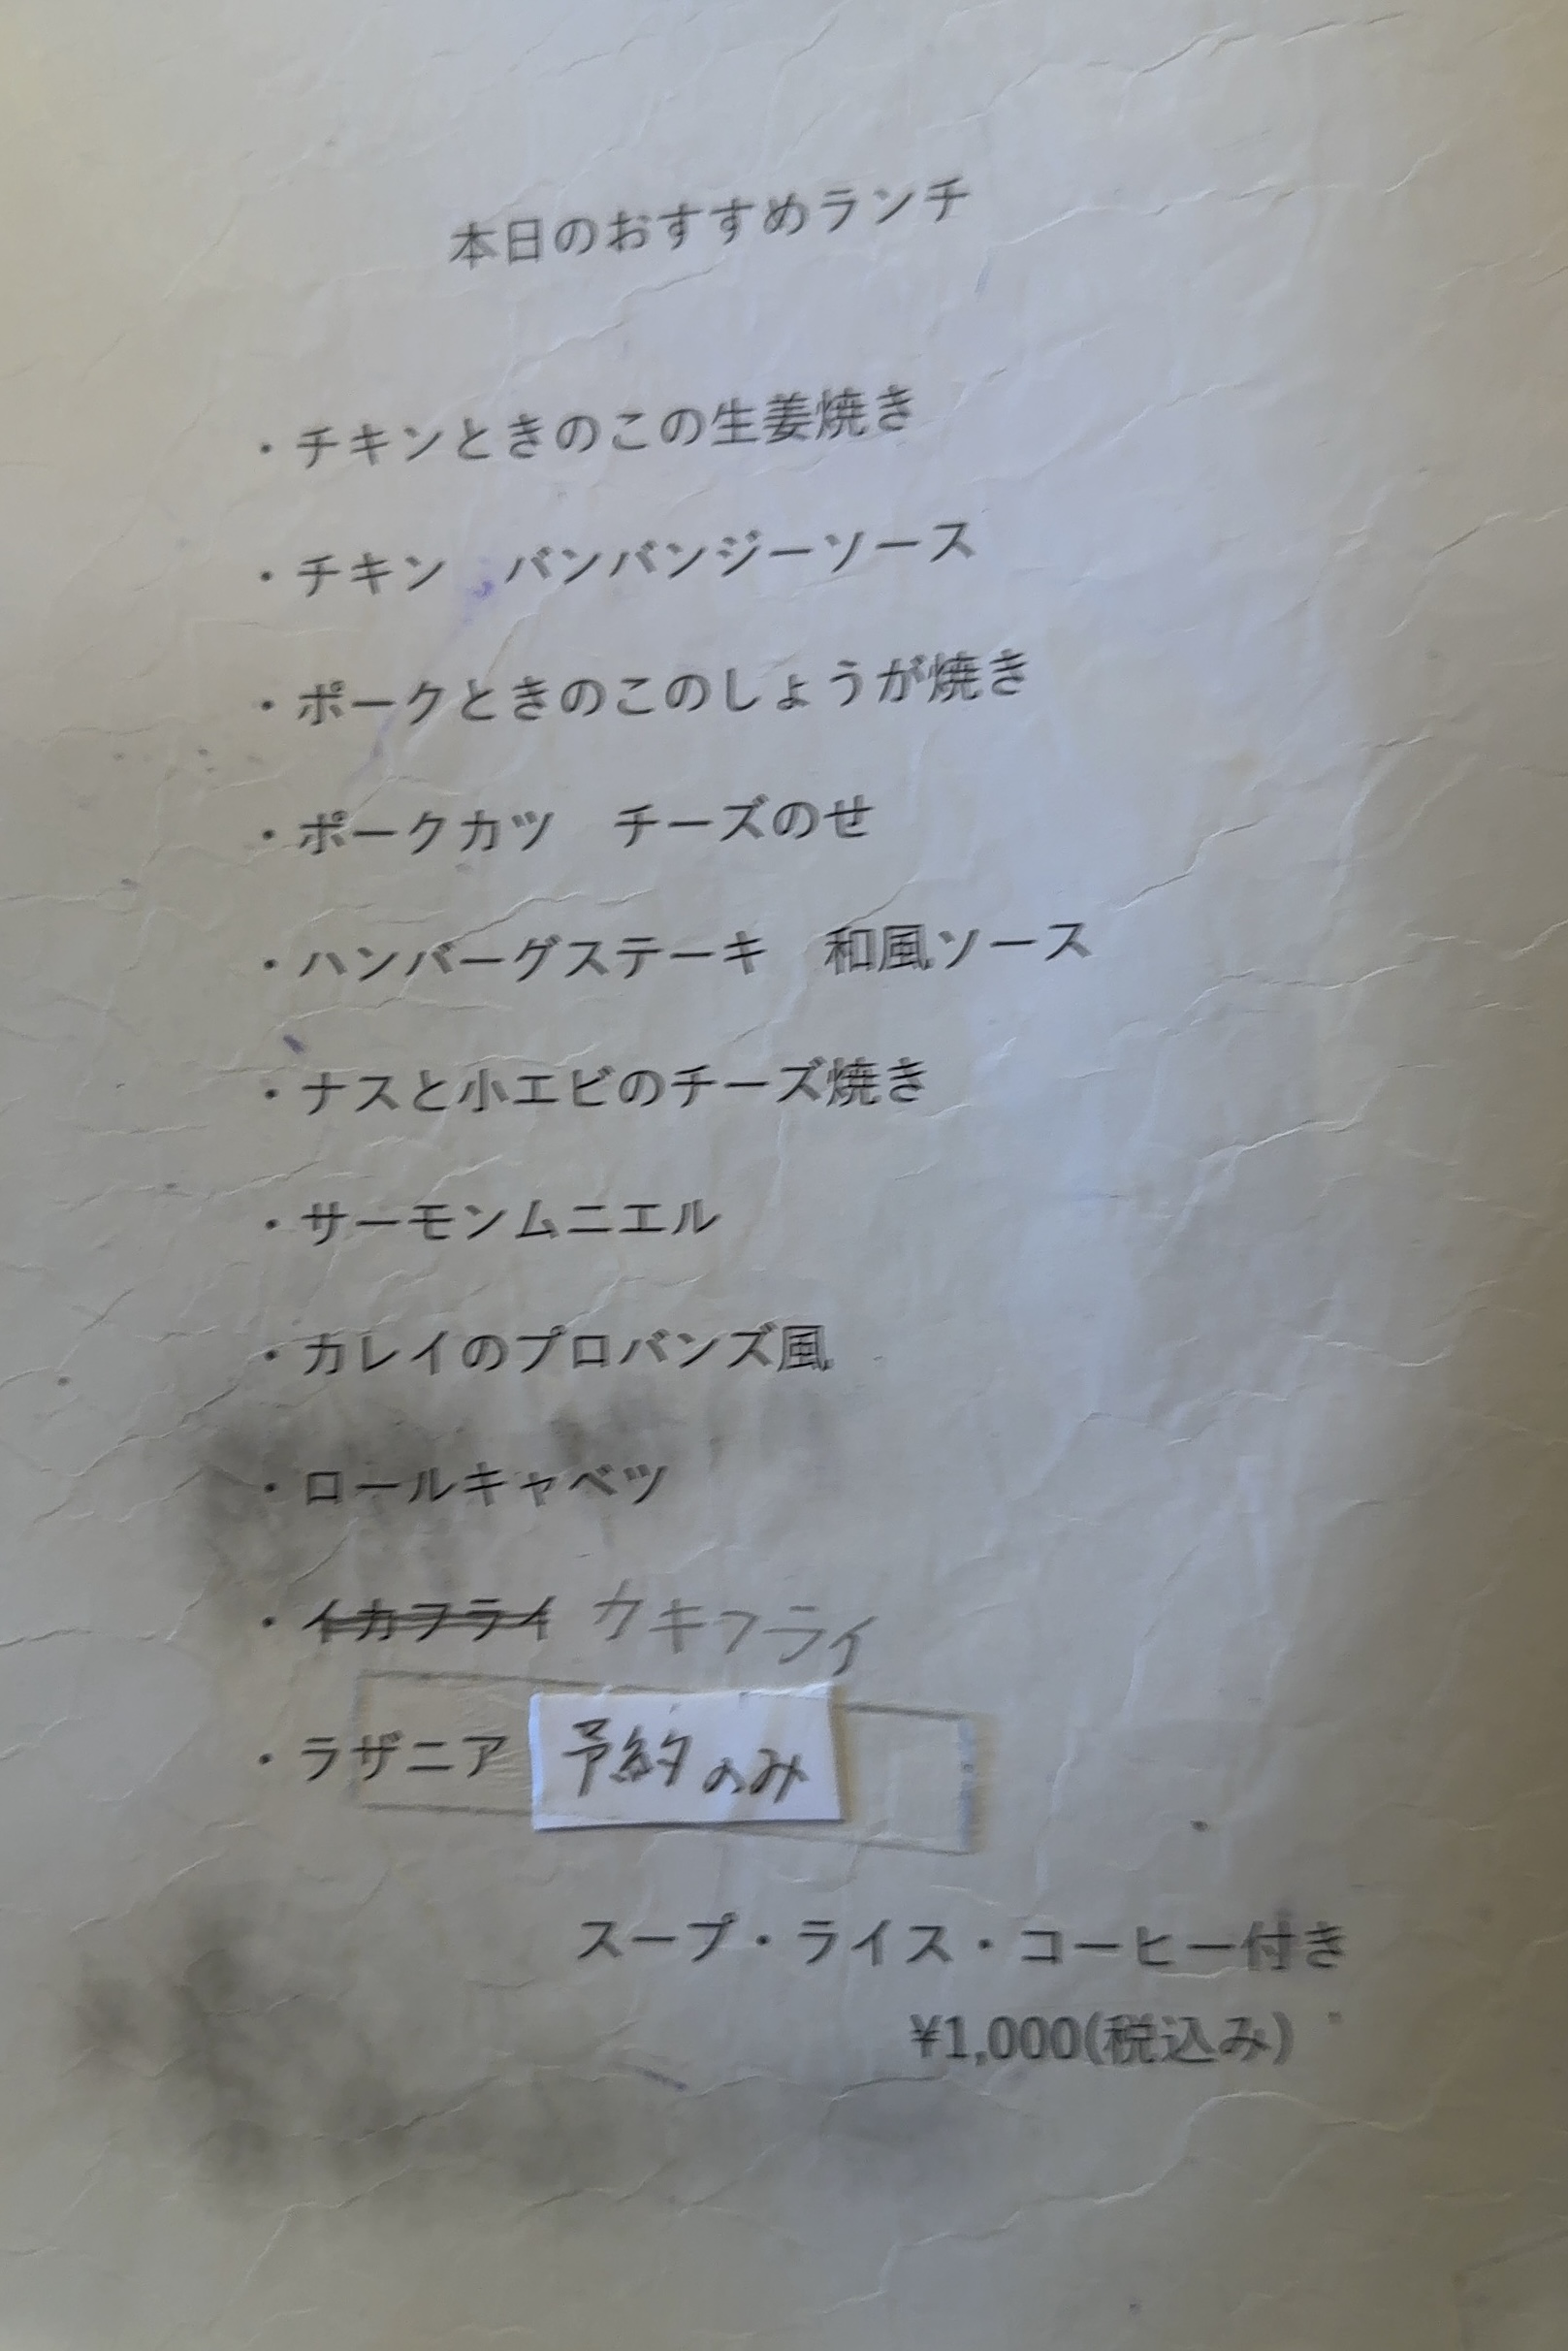 本日のおすすめランチ
・チキンときのこの生姜焼き
・チキン　バンバンジーソース
・ポークときのこのしょうが焼き
・ポークカツ　チーズのせ
・ハンバーグステーキ　和風ソース
・ナスと小エビのチーズ焼き
・サーモンムニエル
・カレイのプロバンズ風
・ロールキャベツ
・イカフライ カキフライ
・ラザニア 予約のみ
スープ・ライス・コーヒー付き
¥1,000(税込み)